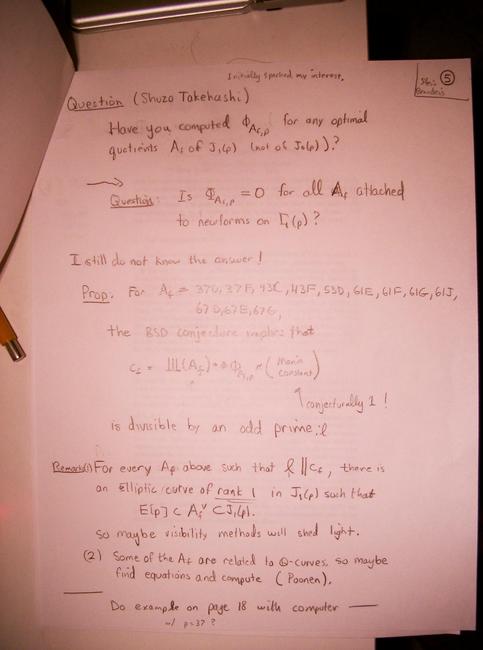 Initially sparked my interest.
5
Question (Shuzo Takehashi)
Have you computed Φ_{A_f,p} for any optimal
quotients A_f of J₁(p) (not of J₀(p))?
→ Question: Is Φ_{A_f,p} = 0 for all A_f attached
to newforms on Γ₁(p)?
I still do not know the answer!
Prop: For A_f = 37D, 37F, 43C, 43F, 53D, 61E, 61F, 61G, 61J,
67D, 67E, 67G,
the BSD conjecture implies that
c_f = Ш(A_f) · #Φ_{A_f,p} · (Manin constant)
↑ conjecturally 1!
is divisible by an odd prime ℓ
Remark: (1) For every A_f above such that ℓ || c_f, there is
an elliptic curve of rank 1 in J₁(p) such that
E[p] ⊂ A_f^∨ ⊂ J₁(p).
So maybe visibility methods will shed light.
(2) Some of the A_f are related to Q-curves, so maybe
find equations and compute (Poonen).
Do example on page 18 with computer
w/ p=37?